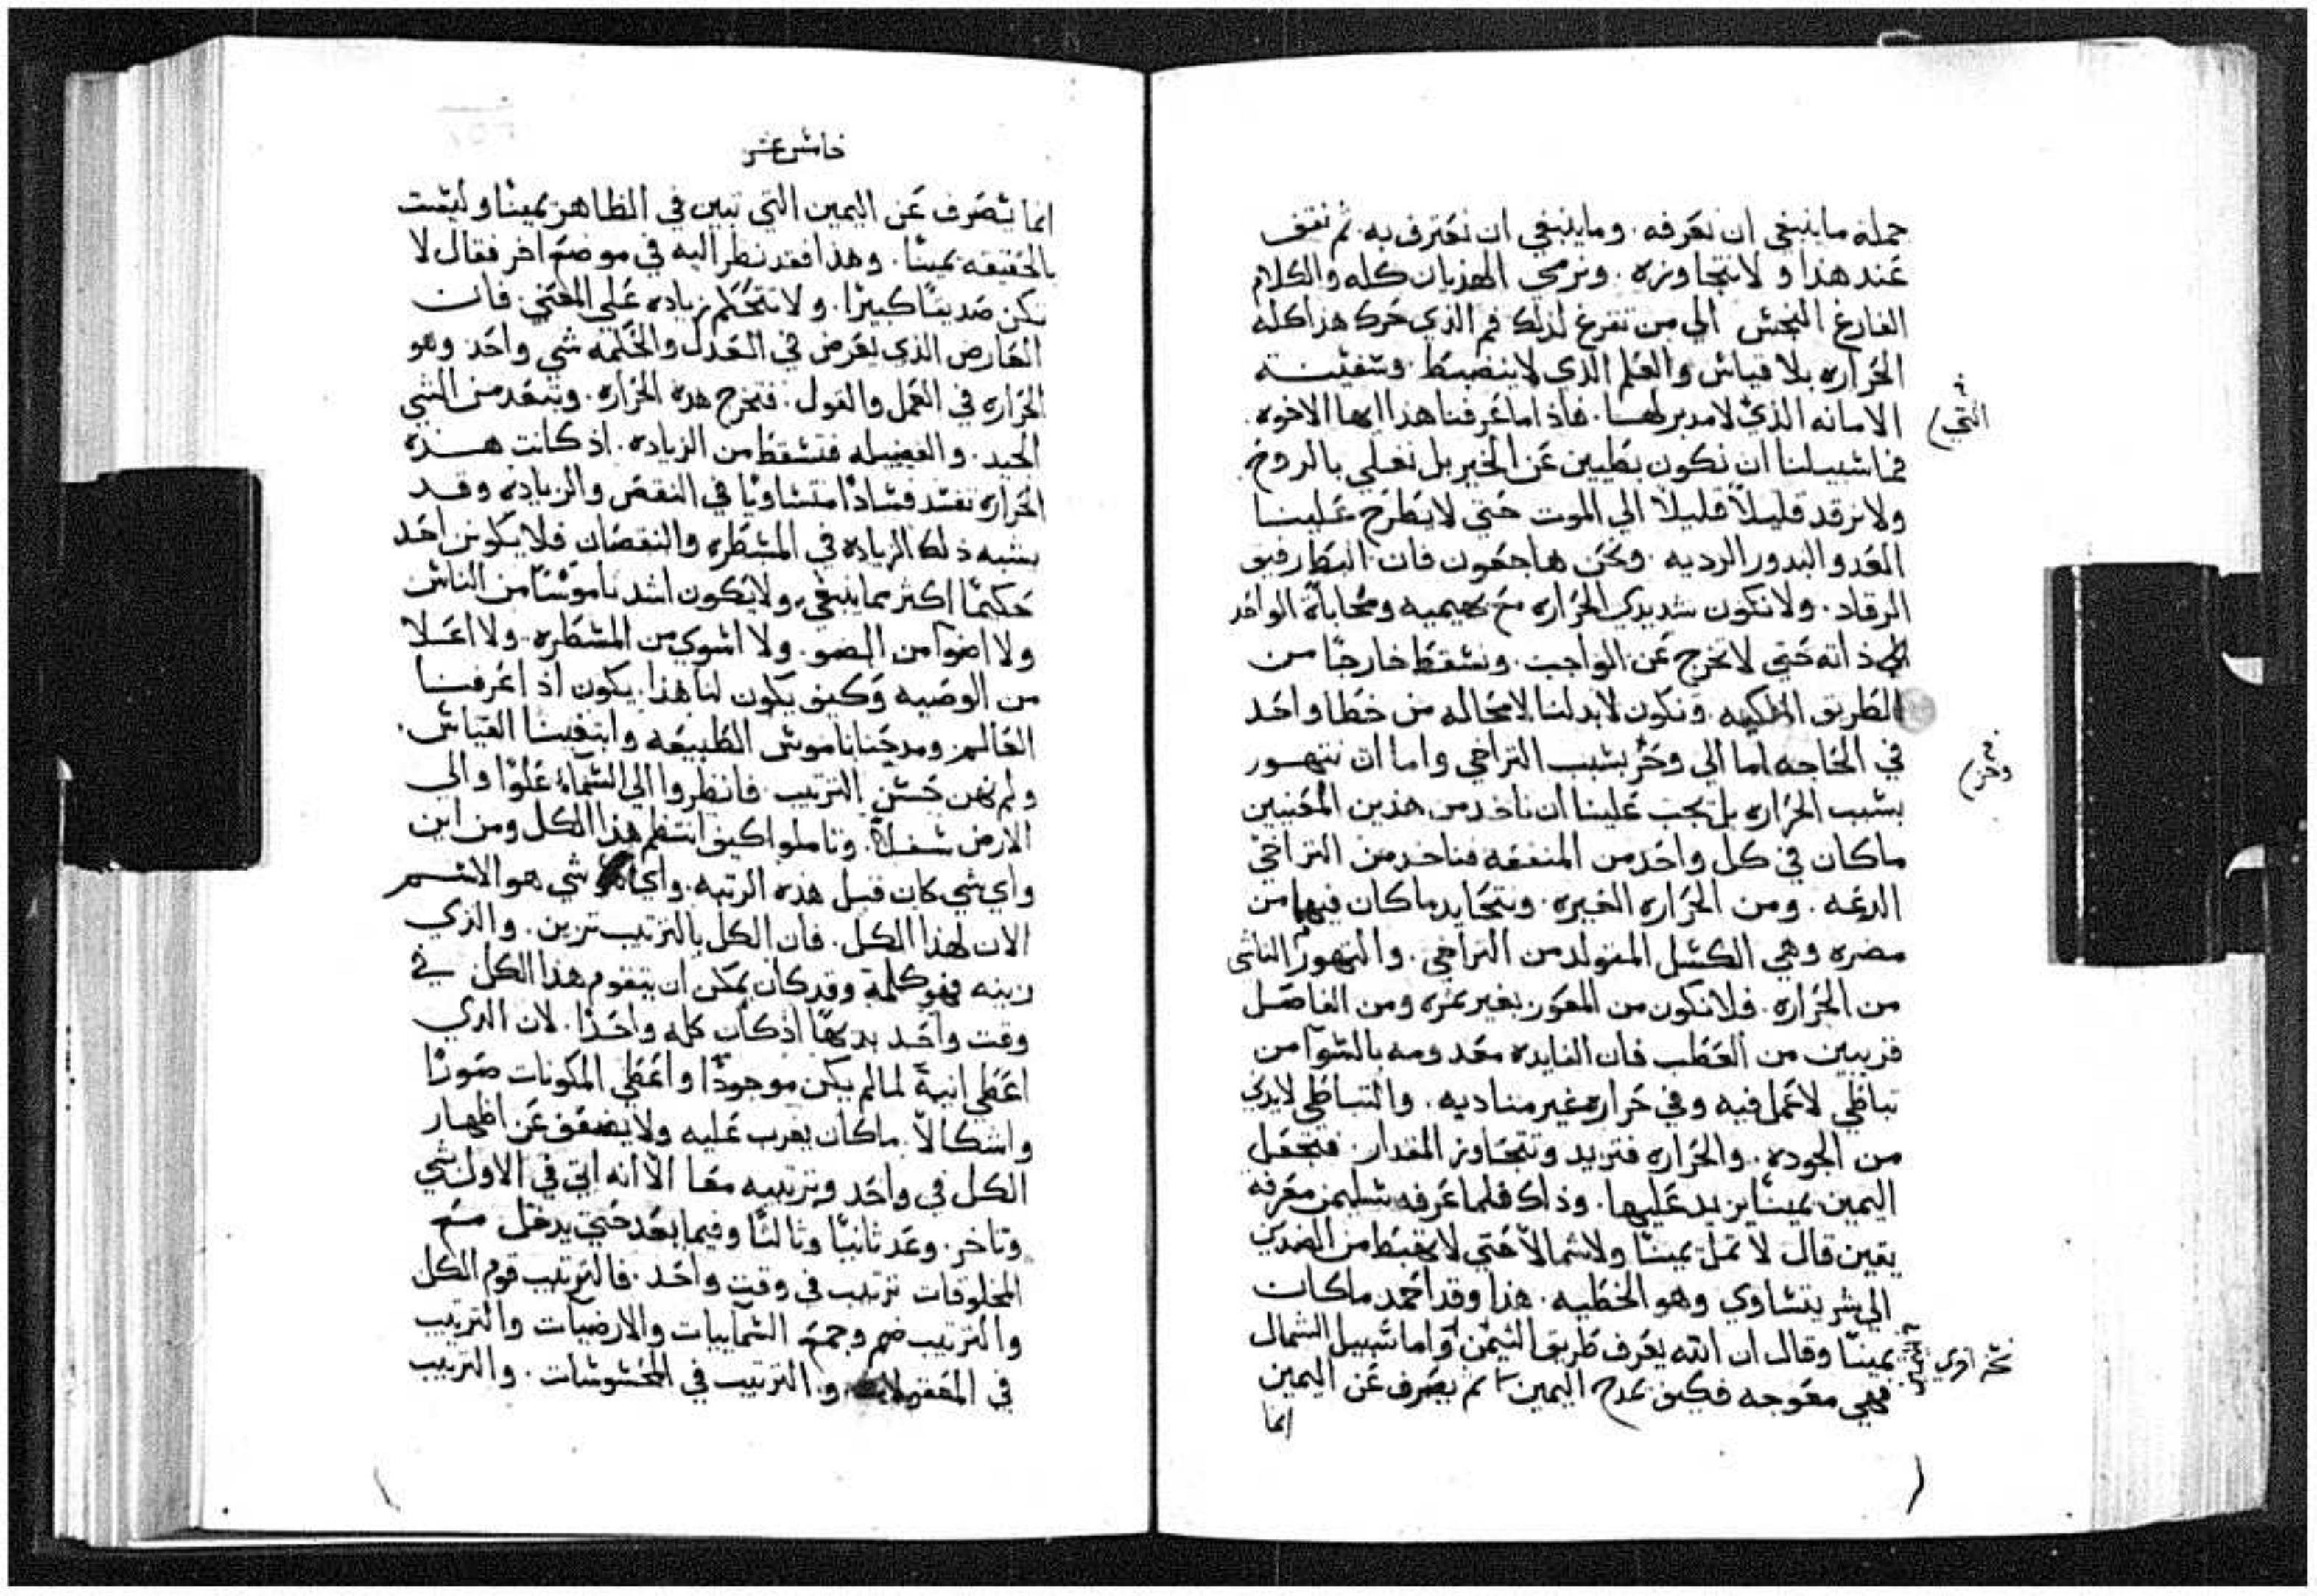 جملة ما ينبغي ان نعرفه. وما ينبغي ان نعترف به. ثم نقف
عند هذا ولا نتجاوزه. ونرمي الهذيان كله والكلام
الفارغ النجس الي من تفرغ لذلك فم الذي حرك هذا كله
الحراره بلا قياس والعلم الذي لا ينضبط. وسفينة
الامانه الذي لا مدبر لها. فاذا ما عرفنا هذا ايها الاخوه.
التي
فما سبيلنا ان نكون بطيين عن الخير بل نغلي بالروح.
ولا نرقد قليلاً قليلاً الي الموت حتي لا يطرح علينا
العدو البدور الرديه. ونحن هاجعون فان البطا رفيق
الرقاد. ولا نكون شديدي الحراره مع بهيميه ومحاباة الواحد
ذاته حتي لا نخرج عن الواجب. ونسقط خارجًا من
الطريق الملكيه. ونكون لا بد لنا لا محاله من خطا واحد
في الحاجه اما الي وخز بسبب التراخي واما ان نتهور
وخز
بسبب الحراره بل يجب علينا ان ناخد من هذين المعنيين
ماكان في كل واحد من المنفعه فناخد من التراخي
الدعه. ومن الحراره الغيره. ونتحايد ماكان فيهما من
مضره وهي الكسل المتولد من التراخي. والتهور الناشي
من الحراره. فلا نكون من المعوز بغير ثمره ومن الفاضل
قريبين من العطب فان الفايده معدومه بالسوآ من
تباطي لا عمل فيه وفي حراره غير متاديه. والتباطي لا يدني
من الجوده. والحراره فتزيد وتتجاوز المقدار. فتجعل
اليمين يمينًا يزيد عليها. وذاك فلما عرفه سليمن معرفه
يقين قال لا تمل يمينًا ولا شمالاً حتي لا تهبط من الضدين
الي شر يتساوي وهو الخطيه. هذا وقد احمد ماكان
يمينًا وقال ان الله يعرف طريق التيمن واما سبيل الشمال
فهي معوجه فكيف يمدح اليمين ثم يصرف عن اليمين
انما
خامس عشر
انما يصرف عن اليمين التي تبين في الظاهر يمينًا وليست
بالحقيقه يمينًا. وهذا فقد نظر اليه في موضع اخر فقال لا
تكن صديقًا كبيرًا. ولا تتحكم زياده علي المعني فان
العارض الذي يعرض في العدل والحكمه شي واحد وهو
الحراره في العمل والقول. فتخرج هذه الحراره. وتبعد من الشي
الجيد. والفضيله فتسقط من الزياده. اذ كانت هذه
الحراره تفسد فسادًا متساويًا في النقص والزياده وقد
يشبه ذلك الزياده في المسطره والنقصان فلا يكونن احد
حكيمًا اكثر مما ينبغي. ولا يكون اشد ناموسًا من الناس
ولا اضوآ من الضو. ولا اسوي من المسطره. ولا اعلا
من الوصيه وكيف يكون لنا هذا. يكون اذا عرفنا
العالم ومدحنا ناموس الطبيعه وابتغينا القياس.
ولم نهن حسن الترتيب. فانظروا الي السماء علوًا والي
الارض سفلاً. وتاملوا كيف انتظم هذا الكل ومن اين
واي شي كان قبل هذه الرتبه. واي شي هو الاسم
الان لهذا الكل. فان الكل بالترتيب تزين. والذي
زينه فهو كلمة وقد كان يمكن ان يتقوم هذا الكل في
وقت واحد بديهًا اذ كان كله واحدًا. لان الذي
اعطي انيةً لما لم يكن موجودًا واعطي المكونات صورًا
واشكالاً. ماكان يعزب عليه ولا يضعف عن اظهار
الكل في واحد وترتيبه معًا الا انه اتي في الاول شي
وتاخر. وعد ثانيًا وثالثًا وفيما بعد حتي يدخل مع
المخلوقات ترتيب في وقت واحد. فالترتيب قوم الكل
والترتيب ضم وجمع السماييات والارضيات والترتيب
في المعقولات والترتيب في المحسوسات. والترتيب